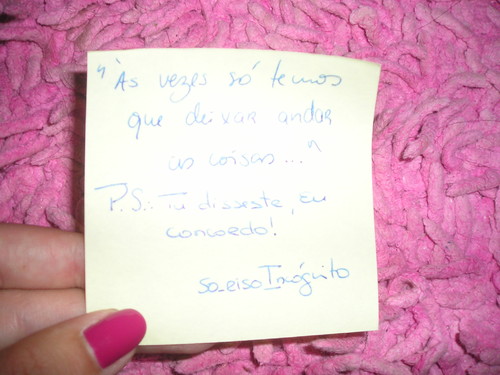 "Às vezes só temos
que deixar andar
as coisas..."
P.S.: Tu disseste, eu
concordo!
Incógnito